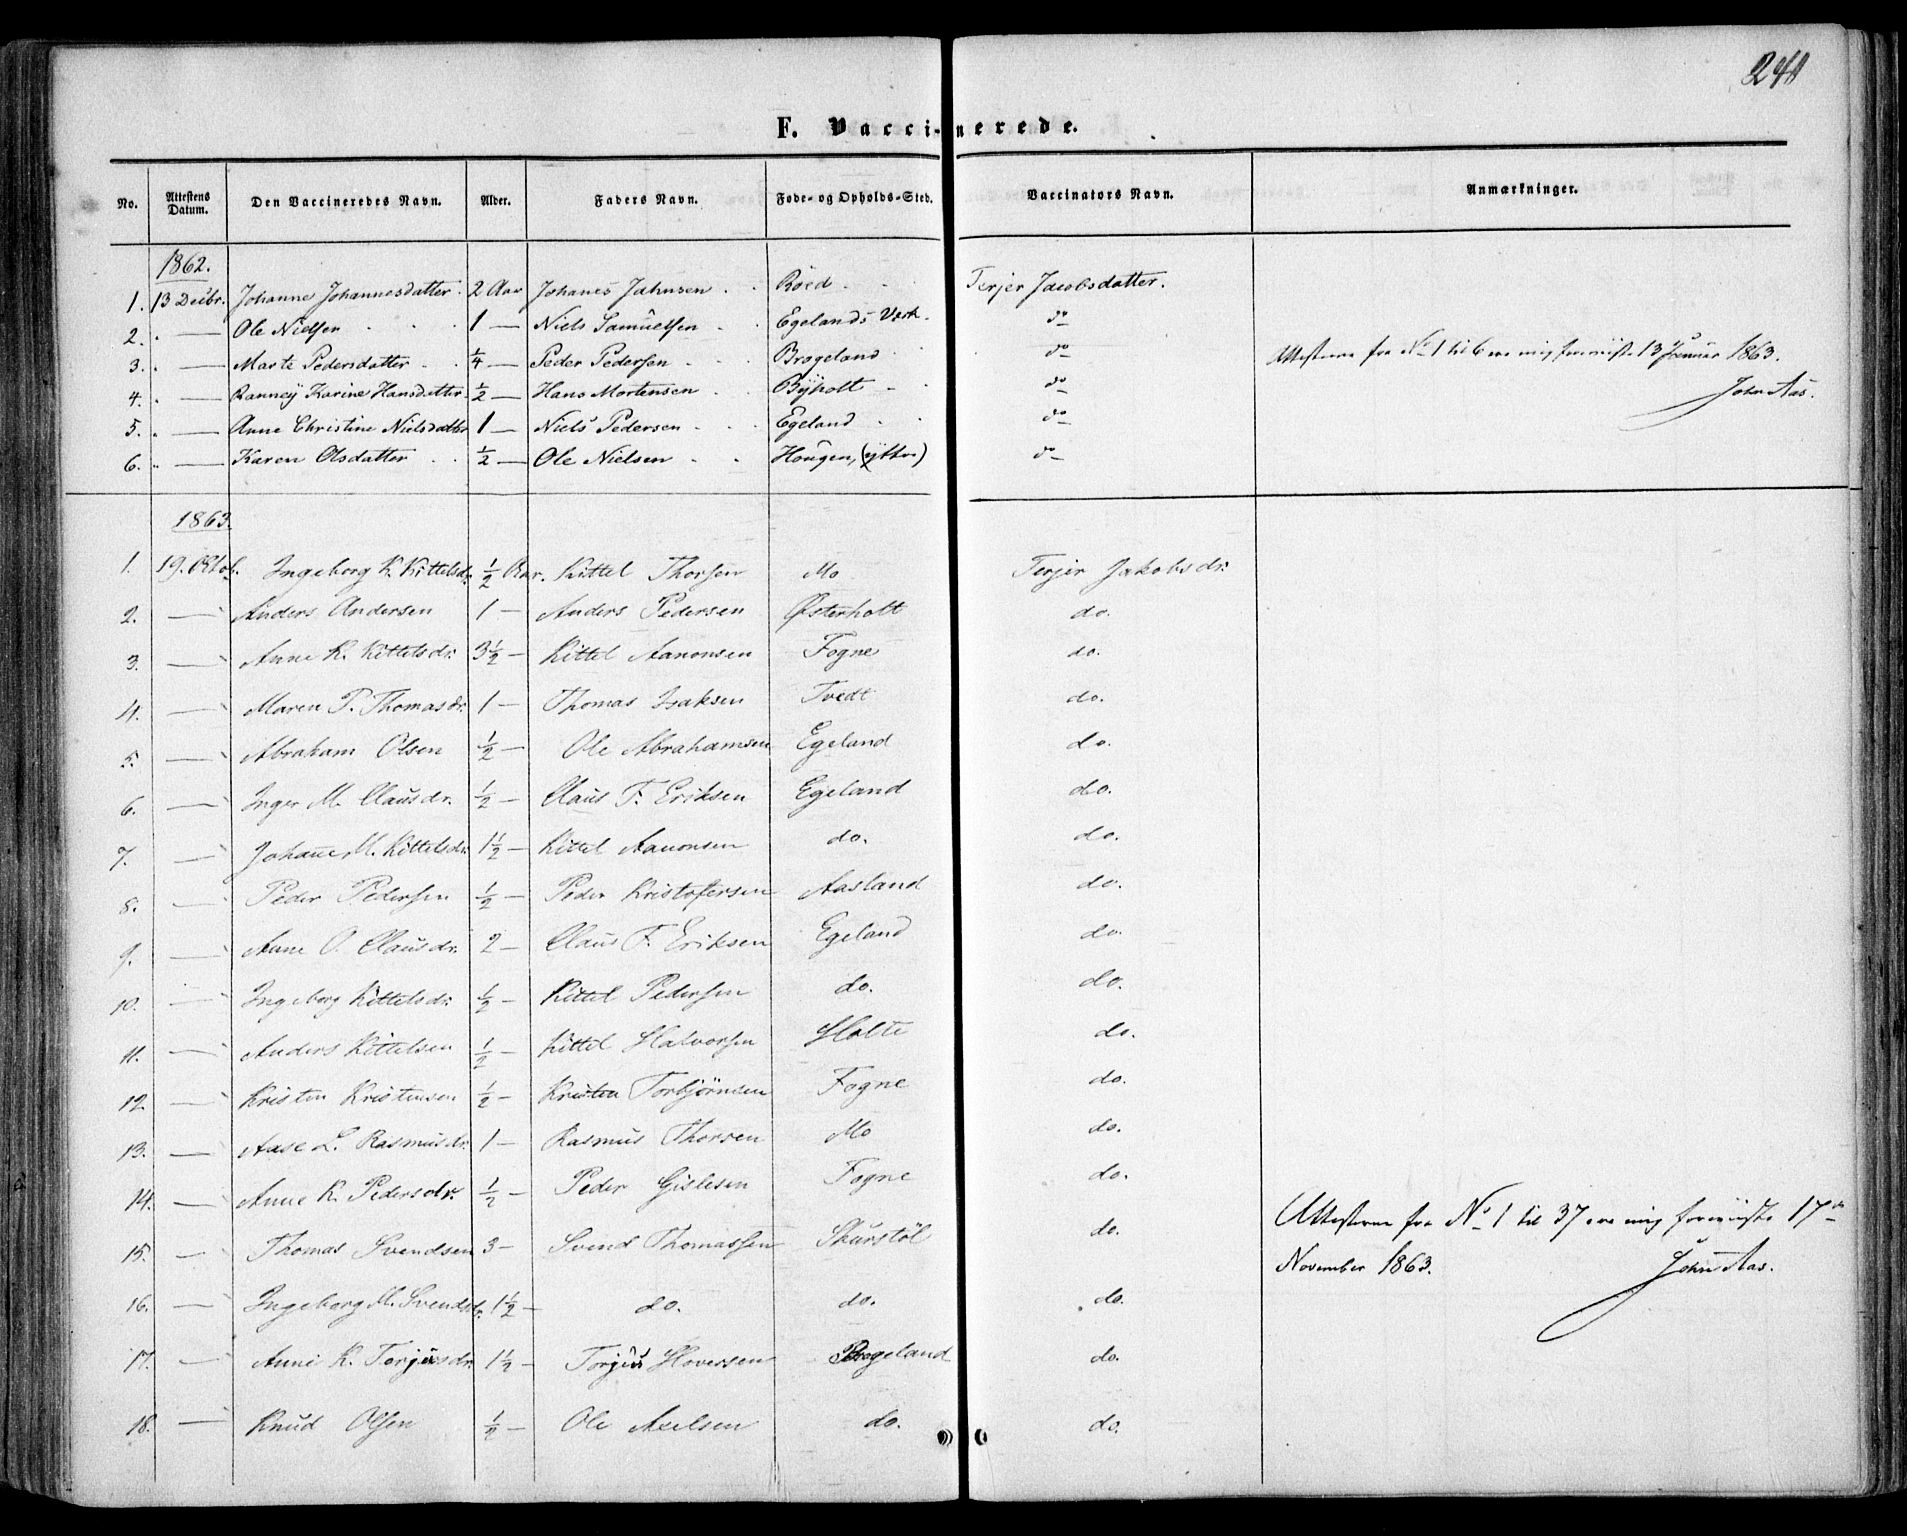 241
F. Vaccinerede.
No. Attestens Datum. Den Vaccineredes Navn. Alder. Faders Navn. Føde- og Opholds-Sted. Vaccinators Navn. Anmærkninger.
1862.
1. 13 Decbr. Johanne Johannesdatter. 2 Aar Johanes Jahnsen Röed Terjer Jacobsdatter.
2. " — Ole Nielsen 1 — Niels Samuelsen Egelands Værk. do
3. " — Marte Pedersdatter ¼ — Peder Pedersen Brøgeland do
4. " — Ranney Karine Hansdatter ½ — Hans Mortensen Bÿholt do
5. " — Anne Christine Nielsdatter 1 — Niels Pedersen Egeland do
6. " — Karen Olsdatter ½ — Ole Nielsen Hougen, (ÿttre) do
Attesterne fra No 1 til 6 ere mig foreviiste 13de Januar 1863.
John Aas.
1863.
1. 19. Oktob. Ingeborg K. Kittelsdr. ½ Aar. Kittel Thorsen Mo Terjer Jakobsdr.
2. — Anders Andersen 1 — Anders Pedersen Østerholt do.
3. — Anne K. Kittelsdr. 3½ — Kittel Aanonsen Fogne do.
4. — Maren P. Thomasdr. 1 — Thomas Isaksen Tvedt do.
5. — Abraham Olsen ½ — Ole Abrahamsen Egeland do.
6. — Inger M. Clausdr. ½ — Claus F. Eriksen Egeland do.
7. — Johanne M. Kittelsdr. 1½ — Kittel Aanonsen do. do.
8. — Peder Pedersen ½ — Peder Kristofersen Aasland do.
9. — Anne O. Clausdr. 2 — Claus F. Eriksen Egeland do.
10. — Ingeborg Kittelsdr. ½ — Kittel Pedersen do. do.
11. — Anders Kittelsen ½ — Kittel Halvorsen Holte do.
12. — Kristen Kristensen ½ — Kristen Torbjørnsen Fogne do.
13. — Aase L. Rasmusdr. 1 — Rasmus Thorsen Mo do.
14. — Anne K. Pedersdr. ½ — Peder Gislesen Fogne do.
15. — Thomas Svendsen 3 — Svend Thomassen Skurstöl do.
16. — Ingeborg M. Svendsdr. 1½ — do. do. do.
17. — Anne K. Torjusdr. 1½ — Torjus Hoversen Brøgeland do.
18. — Knud Olsen ½ — Ole Axelsen do. do.
Attesterne fra No 1 til 37 ere mig foreviiste 17de
November 1863. John Aas.